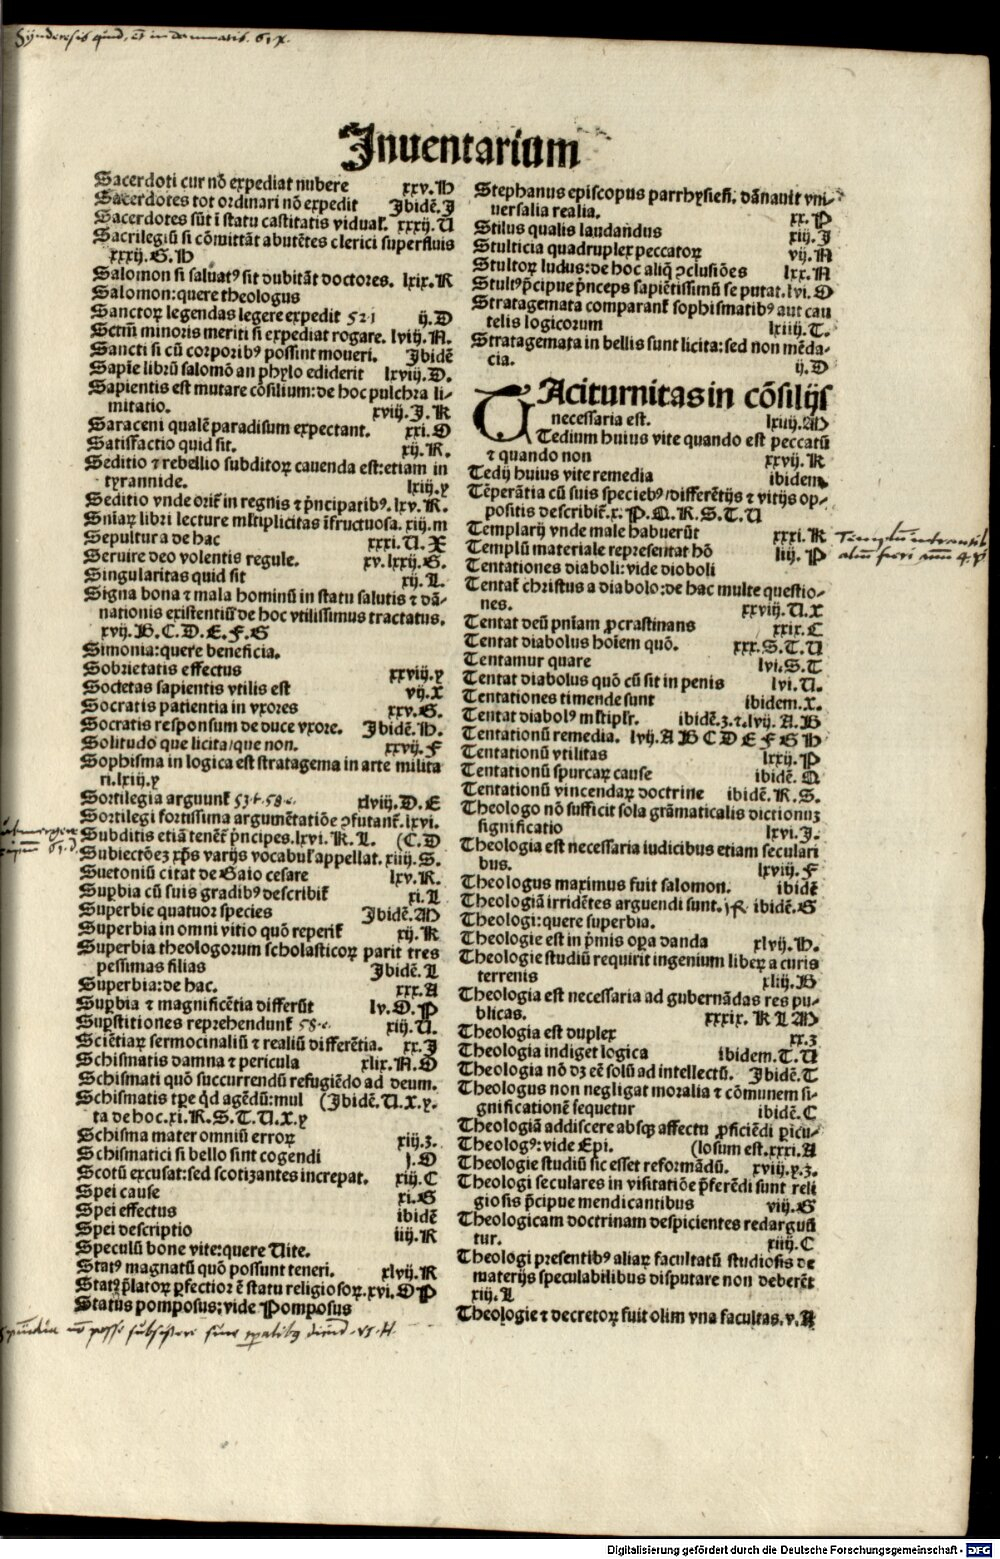 Synderesis quid, et in damnatis. 61 x.
Inuentarium
Sacerdoti cur nõ expediat nubere xxv. H
Sacerdotes tot ordinari nõ expedit Ibidẽ. J
Sacerdotes sũt ĩ statu castitatis vidual. xxxij. U
Sacrilegiũ si cõmittãt abutẽtes clerici superfluis
xxxij. G. H
Salomon si saluatꝰ sit dubitãt doctores. lxix. K
Salomon: quere theologus
Sanctoꝝ legendas legere expedit 521 ij. D
Sctm̃ minoris meriti si expediat rogare. lviij. N.
Sancti si cũ corporibꝰ possint moueri. Ibidẽ
Sapiẽ librũ salomõ an phylo ediderit lxviij. D.
Sapientis est mutare cõsilium: de hoc pulchra li-
mitatio. xviij. J. K
Saraceni qualẽ paradisum expectant. xxi. O
Satisfactio quid sit. xij. R.
Seditio ⁊ rebellio subditoꝝ cauenda est: etiam in
tyrannide. lxij. y
Seditio vnde orit̃ in regnis ⁊ p̃ncipatibꝰ. lxv. R.
Sniaꝝ libri lecture mltiplicitas ĩfructuosa. xiij. m
Sepultura de hac xxxi. U. X
Seruire deo volentis regule. xv. lxxij. G.
Singularitas quid sit xij. L.
Signa bona ⁊ mala hominũ in statu salutis ⁊ dã-
nationis existentiũ de hoc vtilissimus tractatus.
xvij. B. C. D. E. F. G
Simonia: quere beneficia.
Sobrietatis effectus xxviij. y
Societas sapientis vtilis est vij. X
Socratis patientia in vxores xxv. G.
Socratis responsum de duce vxore. Ibidẽ. H.
Solitudo que licita/que non. xxvij. F
Sophisma in logica est stratagema in arte milita
ri. lxiij. y
Sortilegia arguunt̃ 53 t. 58 c. xlviij. D. E
Sortilegi fortissima argumẽtatiõe ↄfutant̃. lxvi.
Subditis etiã tenẽt̃ p̃ncipes. lxvi. K. L. (C. D
Subiectõeꝫ xp̃s varijs vocabul̃ appellat. xiij. S.
Suetoniũ citat de Gaio cesare lxv. R.
Suꝑbia cũ suis gradibꝰ describit̃ xi. L
Superbie quatuor species Ibidẽ. M
Superbia in omni vitio quõ reperit̃ xij. K
Superbia theologorum scholasticoꝝ parit tres
pessimas filias Ibidẽ. L
Superbia: de hac. xxx. A
Suꝑbia ⁊ magnificẽtia differũt lv. O. P
Suꝑstitiones reprehendunt̃ 58. c. xij. U.
Sciẽtiaꝝ sermocinaliũ ⁊ realiũ differẽtia. xx. J
Schismatis damna ⁊ pericula xlix. N. O
Schismati quõ succurrendũ refugiẽdo ad deum.
Schismatis tꝑe qd̃ agẽdũ: mul (Ibidẽ. U. X. y.
ta de hoc. xi. R. S. T. U. X. y
Schisma mater omniũ erroꝝ xiij. z.
Schismatici si bello sint cogendi j. O
Scotũ excusat: sed scotizantes increpat. xiij. C
Spei cause xi. G
Spei effectus ibidẽ
Spei descriptio iiij. R
Speculũ bone vite: quere Uite.
Statꝰ magnatũ quõ possunt teneri. xlvij. R
Statꝰ p̃latoꝝ ꝑfectior ẽ statu religiosoꝝ. xvi. O P
Status pomposus: vide Pomposus
Stephanus episcopus parrhysieñ. dãnauit vni-
uersalia realia. xx. P
Stilus qualis laudandus xiij. J
Stulticia quadruplex peccatoꝝ vij. N
Stultoꝝ ludus: de hoc aliq̃ ↄclusiões lxx. N
Stultꝰ p̃cipue p̃nceps sapiẽtissimũ se putat. lvi. O
Stratagemata comparant̃ sophismatibꝰ aut cau
telis logicorum lxiij. T.
Stratagemata in bellis sunt licita: sed non mẽda-
cia. ij. D
TAciturnitas in cõsilijs
necessaria est. lxiij. M
Tedium huius vite quando est peccatũ
⁊ quando non xxvij. K
Tedij huius vite remedia ibidem
Tẽperãtia cũ suis speciebꝰ/differẽtijs ⁊ vitijs op-
positis describit̃. x. P. Q. R. S. T. U
Templarij vnde male habuerũt xxxi. K
Templũ materiale representat hõ liij. P
Tentationes diaboli: vide dioboli
Tentat̃ christus a diabolo: de hac multe questio-
nes. xxviij. U. X
Tentat deũ pniam ꝓcrastinans xxix. C
Tentat diabolus hoĩem quõ. xxx. S. T. U
Tentamur quare lvi. S. T
Tentat diabolus quõ cũ sit in penis lvi. U.
Tentationes timende sunt ibidem. X.
Tentat diabolꝰ mltiplr̃. ibidẽ. z. ⁊. lvij. A. B
Tentationũ remedia. lvij. A B C D E F G H
Tentationũ vtilitas lxxij. P
Tentationũ spurcaꝝ cause ibidẽ. Q.
Tentationũ vincendaꝝ doctrine ibidẽ. R. S.
Theologo nõ sufficit sola grãmaticalis dictionuꝫ
significatio lxvi. J.
Theologia est necessaria iudicibus etiam seculari
bus. lxviij. F
Theologus maximus fuit salomon. ibidẽ
Theologiã irridẽtes arguendi sunt. ibidẽ. G
Theologi: quere superbia.
Theologie est in p̃mis oꝑa danda xlvij. H.
Theologie studiũ requirit ingenium libeꝝ a curis
terrenis xliij. B
Theologia est necessaria ad gubernãdas res pu-
blicas. xxxix. K L M
Theologia est duplex xx. z
Theologia indiget logica ibidem. T. U
Theologia nõ dꝫ eẽ solũ ad intellectũ. Ibidẽ. T
Theologus non negligat moralia ⁊ cõmunem si-
gnificationẽ sequetur ibidẽ. C
Theologiã addiscere absqꝫ affectu ꝓficiẽdi ꝑicu-
Theologꝰ: vide Epi. (losum est. xxxi. A
Theologie studiũ sic esset reformãdũ. xviij. y. z.
Theologi seculares in visitatiõe p̃ferẽdi sunt reli
giosis p̃cipue mendicantibus viij. G
Theologicam doctrinam despicientes redarguũ
tur. xiij. C
Theologi presentibꝰ aliaꝝ facultatũ studiosis de
materijs speculabilibus disputare non deberẽt
xiij. L
Theologie ⁊ decretoꝝ fuit olim vna facultas. v. R
Digitalisierung gefördert durch die Deutsche Forschungsgemeinschaft - DFG